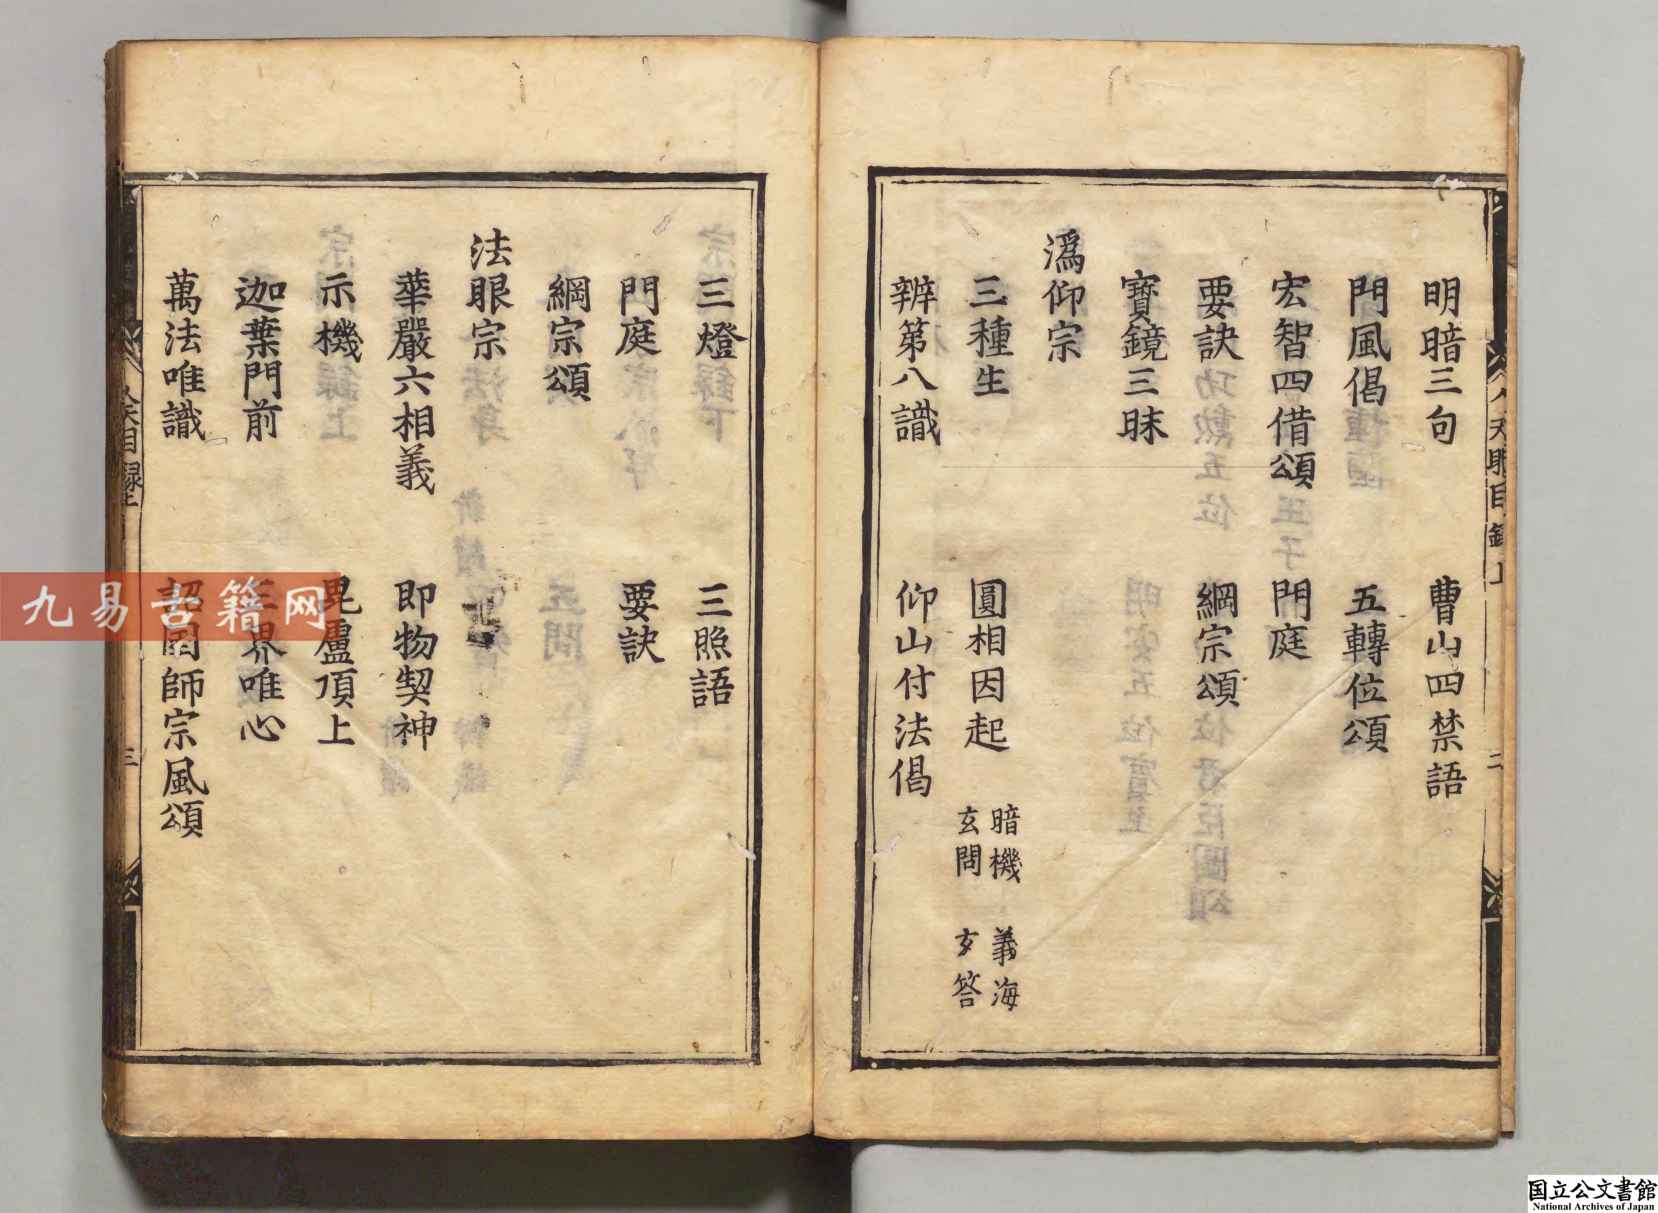 明暗三句　曹山四禁語
門風偈　五轉位頌
宏智四借頌　門庭
要訣　綱宗頌
寶鏡三昧
溈仰宗
三種生　圓相因起　暗機　義海
玄問　玄答
辨第八識　仰山付法偈
三燈　三照語
門庭　要訣
綱宗頌
法眼宗
華嚴六相義　即物契神
示機　毘盧頂上
迦葉門前　三界唯心
萬法唯識　韶國師宗風頌
人天眼目錄上　二
三
九易古籍网
国立公文書館
National Archives of Japan